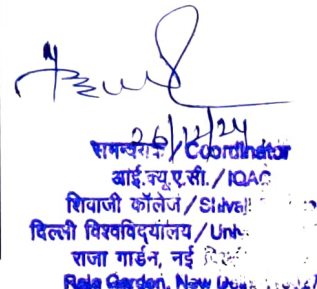 26/12/24
समन्वयक / Coordinator
आई.क्यू.ए.सी. / IQAC
शिवाजी कॉलेज /
दिल्ली विश्वविद्यालय /
राजा गार्डन, नई
Raja Garden, New